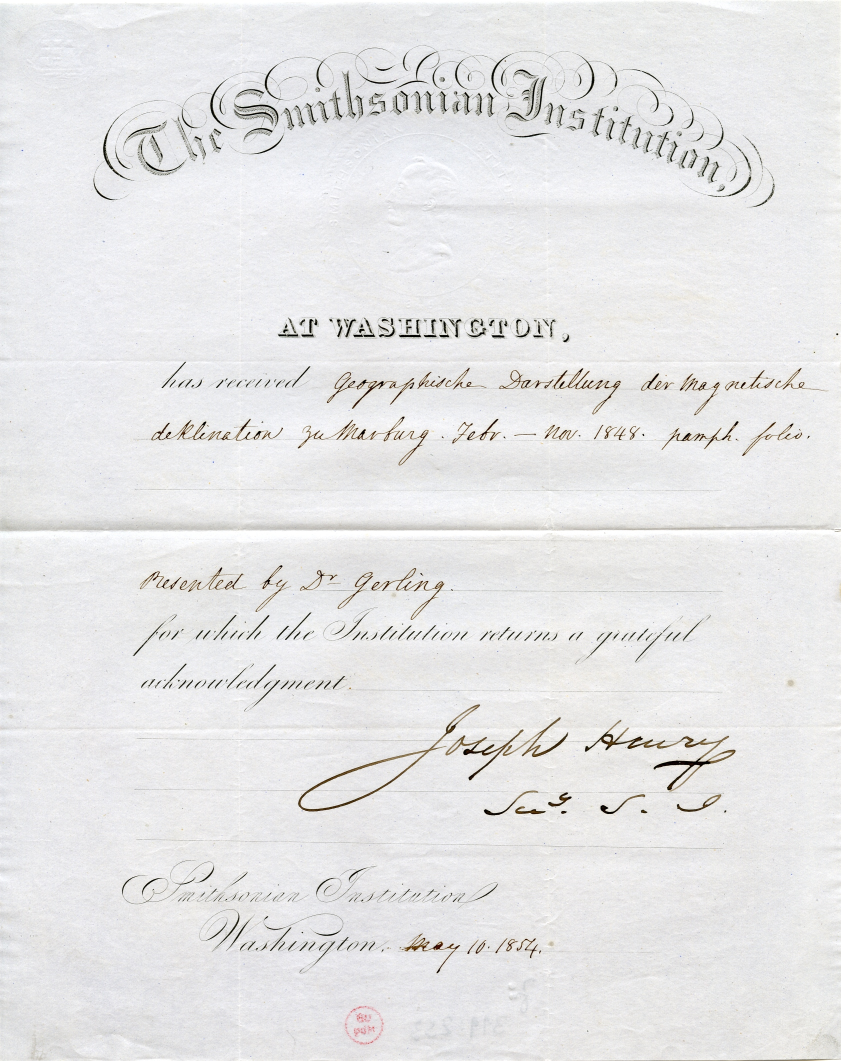 The Smithsonian Institution,
AT WASHINGTON,
has received Geographische Darstellung der Magnetische
deklination zu Marburg. Febr. — Nov. 1848. pamph. folio.
Presented by Dr Gerling.
for which the Institution returns a grateful
acknowledgment.
Joseph Henry
Secy. S. I.
Smithsonian Institution
Washington. May 10. 1854.